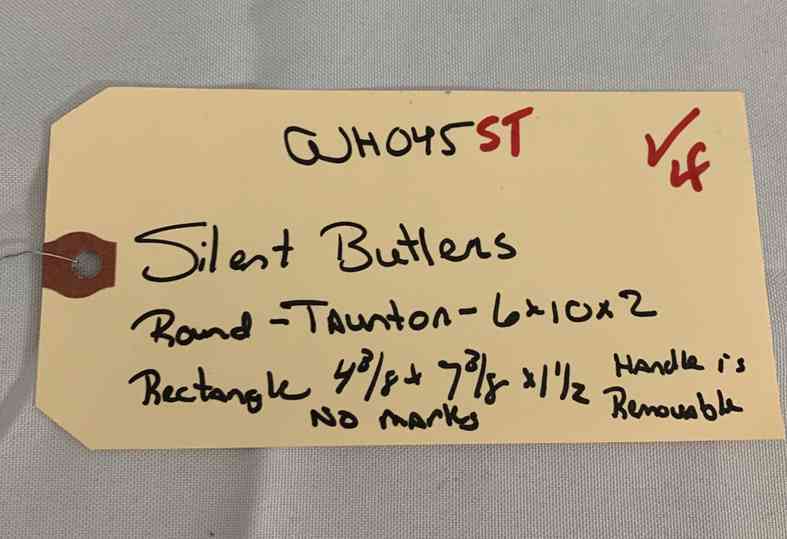 WH045ST
✓ lf
Silent Butlers
Round - Taunton - 6x10x2
Rectangle 4 3/8 x 7 3/8 x 1 1/2 Handle is
No marks Removable